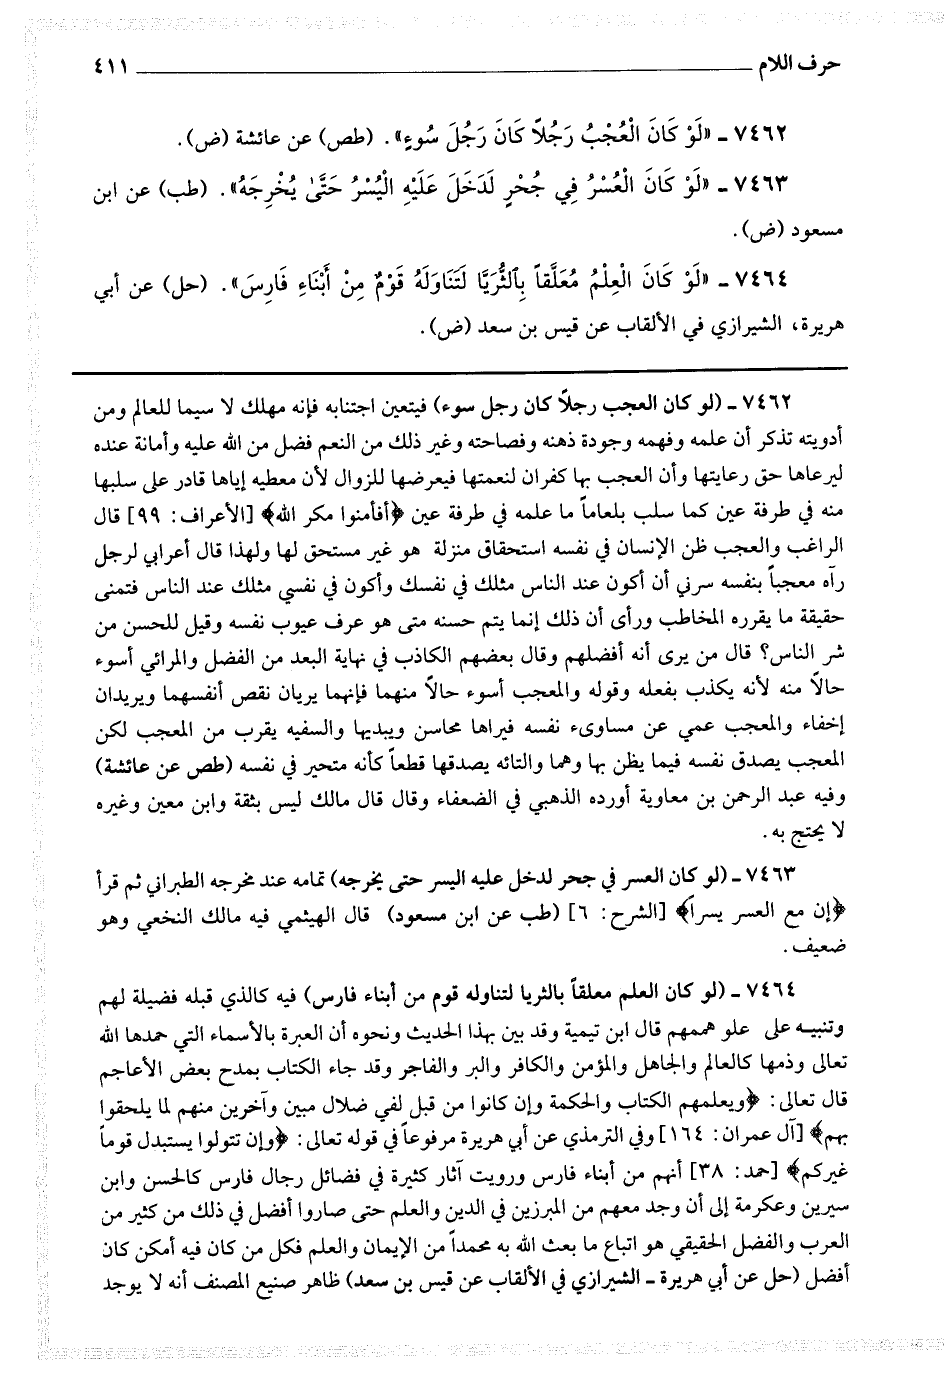 حرف اللام ٤١١
٧٤٦٢ ـ «لَوْ كَانَ الْعُجْبُ رَجُلاً كَانَ رَجُلَ سُوءٍ». (طص) عن عائشة (ض).
٧٤٦٣ ـ «لَوْ كَانَ الْعُسْرُ فِي جُحْرٍ لَدَخَلَ عَلَيْهِ الْيُسْرُ حَتَّىٰ يُخْرِجَهُ». (طب) عن ابن
مسعود (ض).
٧٤٦٤ ـ «لَوْ كَانَ الْعِلْمُ مُعَلَّقاً بِالثُّرَيَّا لَتَنَاوَلَهُ قَوْمٌ مِنْ أَبْنَاءِ فَارِسَ». (حل) عن أبي
هريرة، الشيرازي في الألقاب عن قيس بن سعد (ض).
٧٤٦٢ ـ (لو كان العجب رجلاً كان رجل سوء) فيتعين اجتنابه فإنه مهلك لا سيما للعالم ومن
أدويته تذكر أن علمه وفهمه وجودة ذهنه وفصاحته وغير ذلك من النعم فضل من الله عليه وأمانة عنده
ليرعاها حق رعايتها وأن العجب بها كفران لنعمتها فيعرضها للزوال لأن معطيه إياها قادر على سلبها
منه في طرفة عين كما سلب بلعاماً ما علمه في طرفة عين ﴿أفأمنوا مكر الله﴾ [الأعراف: ٩٩] قال
الراغب والعجب ظن الإنسان في نفسه استحقاق منزلة هو غير مستحق لها ولهذا قال أعرابي لرجل
رآه معجباً بنفسه سرني أن أكون عند الناس مثلك في نفسك وأكون في نفسي مثلك عند الناس فتمنى
حقيقة ما يقرره المخاطب ورأى أن ذلك إنما يتم حسنه متى هو عرف عيوب نفسه وقيل للحسن من
شر الناس؟ قال من يرى أنه أفضلهم وقال بعضهم الكاذب في نهاية البعد من الفضل والمرائي أسوء
حالاً منه لأنه يكذب بفعله وقوله والمعجب أسوء حالاً منهما فإنهما يريان نقص أنفسهما ويريدان
إخفاء والمعجب عمي عن مساوىء نفسه فيراها محاسن ويبديها والسفيه يقرب من المعجب لكن
المعجب يصدق نفسه فيما يظن بها وهما والتائه يصدقها قطعاً كأنه متحير في نفسه (طص عن عائشة)
وفيه عبد الرحمن بن معاوية أورده الذهبي في الضعفاء وقال قال مالك ليس بثقة وابن معين وغيره
لا يحتج به.
٧٤٦٣ ـ (لو كان العسر في جحر لدخل عليه اليسر حتى يخرجه) تمامه عند مخرجه الطبراني ثم قرأ
﴿إن مع العسر يسراً﴾ [الشرح: ٦] (طب عن ابن مسعود) قال الهيثمي فيه مالك النخعي وهو
ضعيف.
٧٤٦٤ ـ (لو كان العلم معلقاً بالثريا لتناوله قوم من أبناء فارس) فيه كالذي قبله فضيلة لهم
وتنبيه على علو هممهم قال ابن تيمية وقد بين بهذا الحديث ونحوه أن العبرة بالأسماء التي حمدها الله
تعالى وذمها كالعالم والجاهل والمؤمن والكافر والبر والفاجر وقد جاء الكتاب بمدح بعض الأعاجم
قال تعالى: ﴿ويعلمهم الكتاب والحكمة وإن كانوا من قبل لفي ضلال مبين وآخرين منهم لما يلحقوا
بهم﴾ [آل عمران: ١٦٤] وفي الترمذي عن أبي هريرة مرفوعاً في قوله تعالى: ﴿وإن تتولوا يستبدل قوماً
غيركم﴾ [حمد: ٣٨] أنهم من أبناء فارس ورويت آثار كثيرة في فضائل رجال فارس كالحسن وابن
سيرين وعكرمة إلى أن وجد معهم من المبرزين في الدين والعلم حتى صاروا أفضل في ذلك من كثير من
العرب والفضل الحقيقي هو اتباع ما بعث الله به محمداً من الإيمان والعلم فكل من كان فيه أمكن كان
أفضل (حل عن أبي هريرة ـ الشيرازي في الألقاب عن قيس بن سعد) ظاهر صنيع المصنف أنه لا يوجد